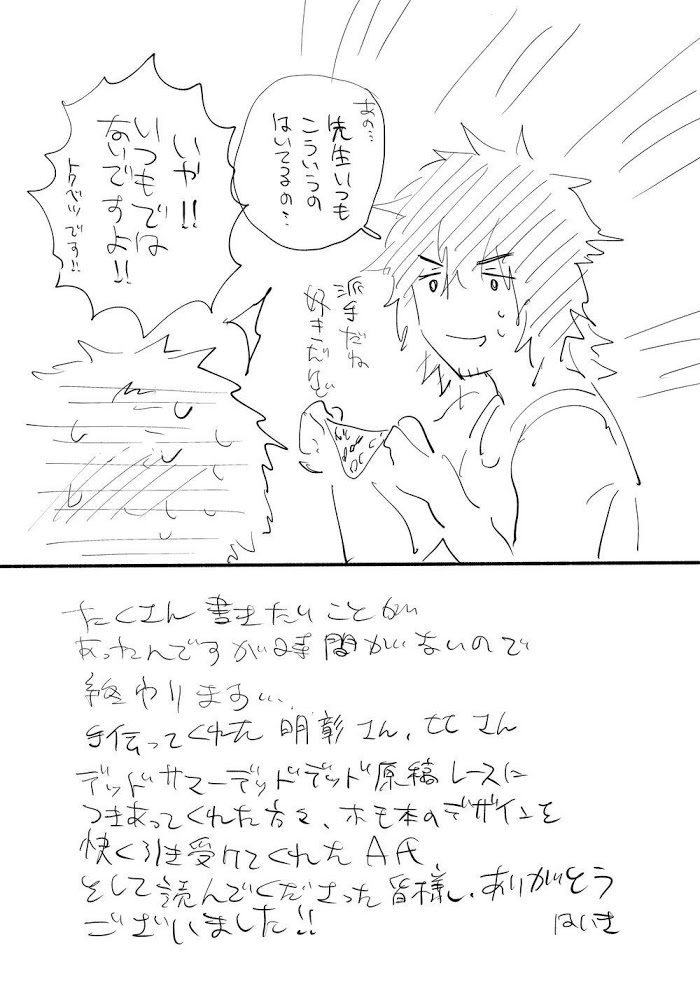 あの…
先生いつも
こういうの
はいてるの…
いや!!
いつもでは
ないですよ!!
トクベツです!!
派手だね
好きだけど
たくさん書きたいことが
あったんですが時間がないので
終わります…
手伝ってくれた明彰さん、ヒヒさん
デッドサマーデッドデッド原稿レースに
つきあってくれた方々、ホモ本のデザインを
快く引き受けてくれたA氏
そして読んでくださった皆様、ありがとう
ございました!!
はいき